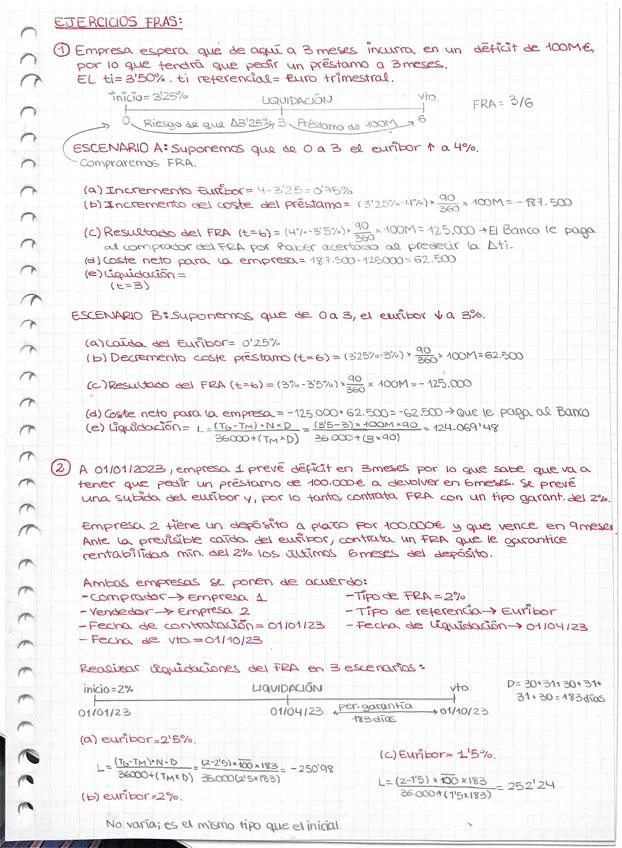 EJERCICIOS FRAS:
① Empresa espera que de aquí a 3 meses incurra en un déficit de 100M€,
por lo que tendrá que pedir un préstamo a 3 meses.
EL ti= 3'50%. ti referencial= Euro trimestral.
inicio= 3'25% LIQUIDACIÓN vto. FRA= 3/6
0 Riesgo de que Δ3'25% 3 Préstamo de 100M 6
ESCENARIO A: Suponemos que de 0 a 3 el euribor ↑ a 4%.
Compraremos FRA.
(a) Incremento Euribor= 4-3'25=0'75%
(b) Incremento del coste del préstamo= (3'25%-4%)× 90/360 × 100M = -187.500
(c) Resultado del FRA (t=6)= (4%-3'5%)× 90/360 × 100M= 125.000 → El Banco le paga
al comprador del FRA por haber acertado al predecir la Δti.
(d) Coste neto para la empresa= 187.500-125000= 62.500
(e) Liquidación=
(t=3)
ESCENARIO B: Suponemos que de 0 a 3, el euribor ↓ a 3%.
(a) Caída del Euribor= 0'25%
(b) Decremento coste préstamo (t=6)= (3'25%-3%)× 90/360 × 100M= 62.500
(c) Resultado del FRA (t=6)= (3%-3'5%)× 90/360 × 100M = -125.000
(d) Coste neto para la empresa= -125.000+62.500= -62.500 → que le paga al Banco
(e) Liquidación= L= (TG-TM)*N*D / 36000+(TM×D) = (3'5-3)×100M×90 / 36.000+(3×90) = 124.069'48
② A 01/01/2023, empresa 1 prevé déficit en 3 meses por lo que sabe que va a
tener que pedir un préstamo de 100.000€ a devolver en 6 meses. Se prevé
una subida del euribor y, por lo tanto, contrata FRA con un tipo garant. del 2%.
Empresa 2 tiene un depósito a plazo por 100.000€ y que vence en 9 meses.
Ante la previsible caída del euribor, contrata un FRA que le garantice
rentabilidad mín. del 2% los últimos 6 meses del depósito.
Ambas empresas se ponen de acuerdo:
- Comprador → Empresa 1 - Tipo de FRA= 2%
- Vendedor → Empresa 2 - Tipo de referencia → Euribor
- Fecha de contratación= 01/01/23 - Fecha de Liquidación → 01/04/23
- Fecha de vto.= 01/10/23
Realizar liquidaciones del FRA en 3 escenarios:
inicio= 2% LIQUIDACIÓN vto D= 30+31+30+31+
31+30= 183 días
01/01/23 01/04/23 per. garantía 01/10/23
183 días
(a) euribor=2'5%. (c) Euribor= 1'5%.
L= (TG-TM)*N*D / 36000+(TM×D) = (2-2'5)×100×183 / 36.000(2'5×183) = -250'98 L= (2-1'5)×100×183 / 36.000+(1'5×183) = 252'24
(b) euribor=2%.
No varía; es el mismo tipo que el inicial